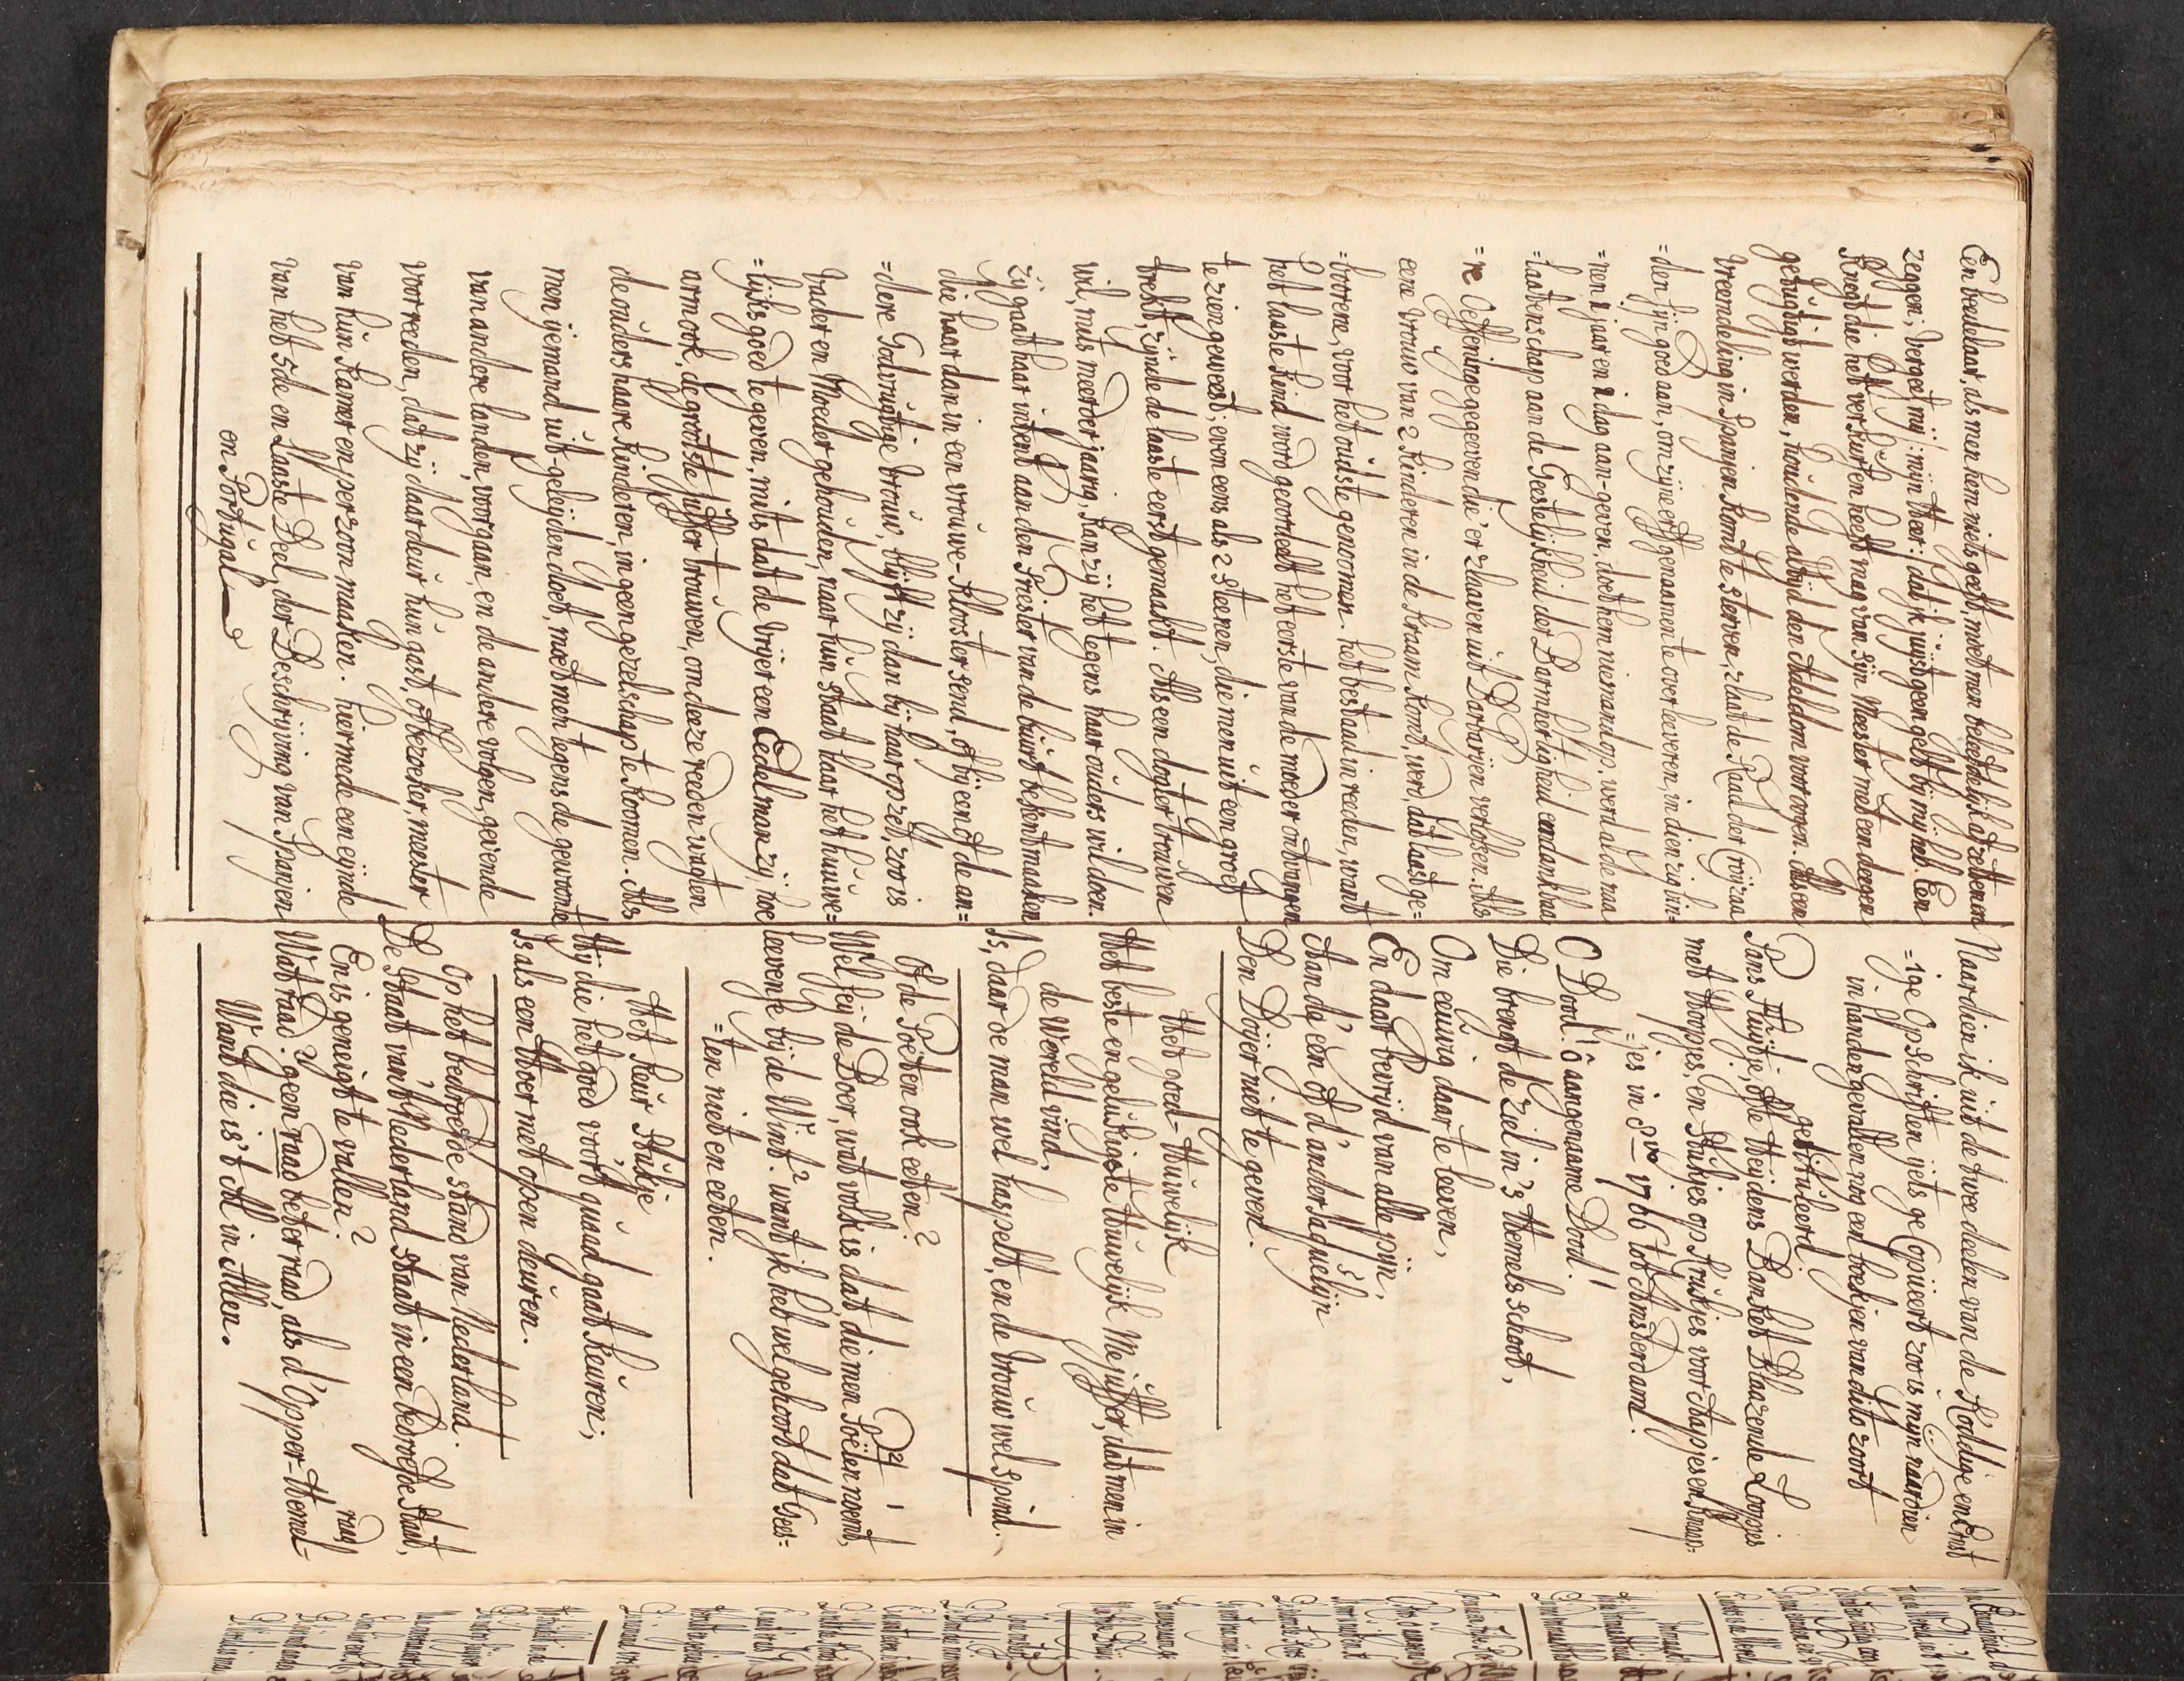 Een bedelaar, als men hem niets geeft, moet men beleefdelijk afzetten en
zeggen; vergeet mij: mijn Heer: dat ik juijst geen gelt bij mij heb. Een
Knegt die het verkurfen heeft mag van Sijn Meester met een deegen
getugtigt werden, houdende altijd den Adeldom voor oogen. Als een
Vreemdeling in Spanjen komt te sterven, slaat de Raad der Croijzaa
=den sijn goed aan, om zijne erffgenaamen te overleeveren, indien zig bin=
=nen 1 jaar en 1 dag aan-geven, doet hem niemand op. werd al de naa
=laatenschap aan de Geestelijkheid der Barmhertigheid en dankbaa
=re Oeffeninge gegeeven die'er slaaven uit Barbarijen verlossen. Als
eene vrouw van 2 kinderen in de kraam komt, werd, dat laast ge=
=boorene, voor het oudste genoomen. het bestaat in reeden, want
het laaste kind word geoordeelt het eerste van de moeder ontvangen
te zien geweest; even eens als 2 steenen, die men uit een groef
trekt, zijnde de laaste eerst gemaakt. Als een dogter trouwen
wil, mits meerderjaarig, kan zij het tegens haar ouders wil doen.
zij gaat haar intent aan den Priester van de buurt bekent maaken
die haar dan in een vrouwe-klooster send, of bij een of de an=
=dere Godvrugtige vrouw, blijft zij dan bij haar opzet, zoo is
Vader en Moeder gehouden, naar hun staat haar het huuwe=
=lijks goed te geven, mits dat de vrijer een Eedelman zij, hoe
arm ook, de grootste juffer trouwen, om deeze reeden wagten
de ouders haare kinderen, in geen gezelschap te koomen. Als
men ijemand uit-geleijden doet, moet men tegens de gewoonte
van andere landen, voorgaan, en de andere volgen, gevende
voor reeden, dat zij daardeur hun gast, of bezoeker, meester
van hun kamer en perzoon maaken. hiermede een eijnde
van het 5de en Laaste Deel, der Beschrijving van Spanjen
en Portugal
Naardien ik uit de twee deelen van de Koddige en Ernst
=ige Opschriften ijets geCopiieert zoo is mijn naardien
in handen gevallen nog een boekjen van dito zoort
getituleerd
Pans Fluijtje, ofte Heijdens Banket Blaazende Loopjes
met Hoopjes, en Stukjes op Krukjes voor Aapjes en Knaap=
=jes in 8vo 1766 tot Amsterdam.
O Dood! ô aangenaame Dood!
Die brengt de ziel in 's Hemels schoot,
Om eeuwig daar te leeven,
En daar bevrijd van alle pijn,
Aan de' een of d' ander Jaquelijn
Den Duijer niet te geven.
Het goed-Huwelijk
Het beste en gelukigste Huwelijk Mejuffer, dat men in
de Wereld vind,
Is, daar de man wel haspelt, en de vrouw wel spind.
Of de Poëten ook eeten?
Wel feij de Boer, wat volk is dat, die men Poëten noemt,
leeven ze bij de Wint? want ik heb wel gehoord dat Gees=
=ten niet en eeten.
Het Keur Stukje
Hij die het goed voor't quaad gaat keuren;
Is als een Hoer met open deuren.
Op het bedroefde stand van Nederland.
De Staat van't Nederland staat in een bedroefde staat,
En is geneigt te vallen?
Wat raad? geen raad beter raad, als d'Opper-Hemel-raad
Want die is't Al in Allen.